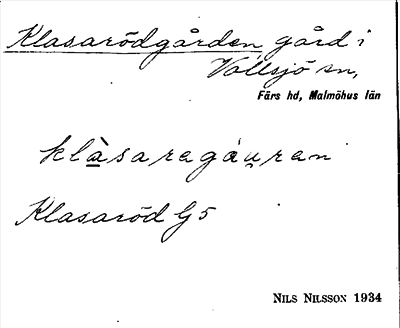 Klasarödgården gård i
Vollsjö sn,
Färs hd, Malmöhus län
klàsaragáu̯ran
Klasaröd G5
NILS NILSSON 1934